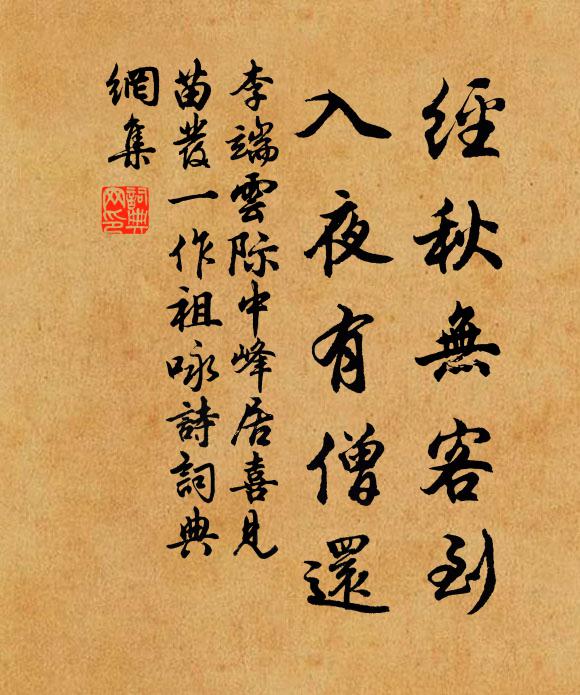 經秋無客到
入夜有僧還
李端雲際中峰居喜見
苗發一作祖咏詩詞典
網集
詞典
网印